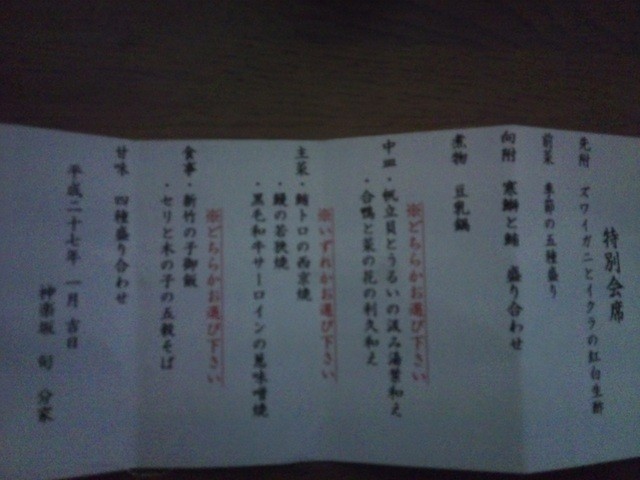 特別会席
先附 ズワイガニとイクラの紅白生酢
前菜 季節の五種盛り
向附 寒鰤と鮪 盛り合わせ
煮物 豆乳鍋
中皿 ※どちらかお選び下さい
・帆立貝とうるいの汲み湯葉和え
・合鴨と菜の花の利久和え
主菜 ※いずれかお選び下さい
・鮪トロの西京焼
・鰻の若狭焼
・黒毛和牛サーロインの葱味噌焼
食事 ※どちらかお選び下さい
・新竹の子御飯
・セリと木の子の五穀そば
甘味 四種盛り合わせ
平成二十七年 一月 吉日
神楽坂 旬 分家